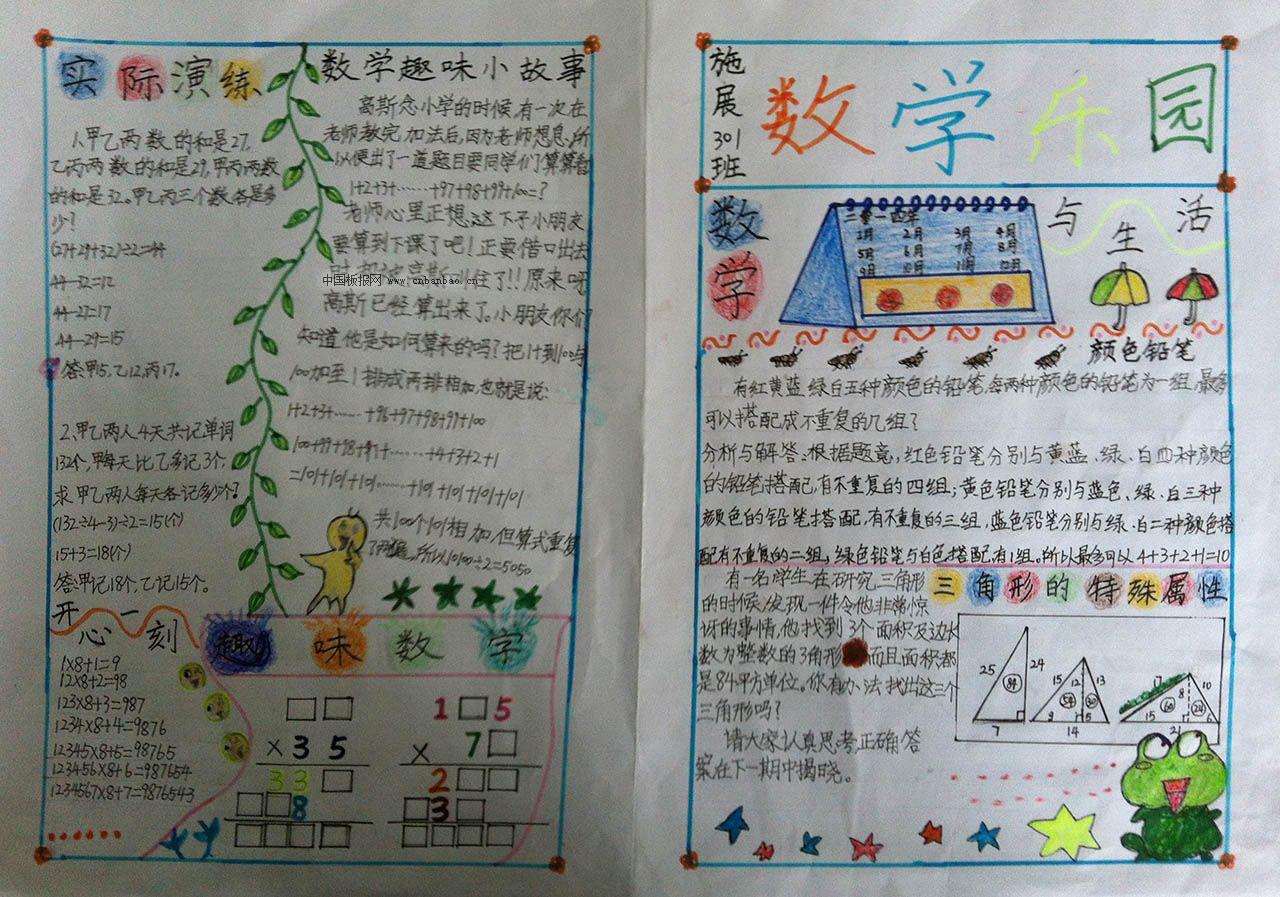 实际演练
1.甲乙两数的和是27,
乙丙两数的和是29,甲丙两数
的和是32。甲乙丙三个数各是多
少?
(27+29+32)÷2=44
44-32=12
44-27=17
44-29=15
答:甲15,乙12,丙17。
2.甲乙两人4天共记单词
132个,甲每天比乙多记3个,
求甲乙两人每天各记多少个?
(132÷4-3)÷2=15(个)
15+3=18(个)
答:甲记18个,乙记15个。
数学趣味小故事
高斯念小学的时候,有一次在
老师教完加法后,因为老师想息,所
以便出了一道题目要同学们算算看
1+2+3+……+97+98+99+100=?
老师心里正想,这下子小朋友
要算到下课了吧!正要借口出去
时,却被高斯叫住了!!原来呀
中国板报网 www.cnbanbao.cn
高斯已经算出来了。小朋友你们
知道他是如何算来的吗?把1+到100与
100加至1排成两排相加,也就是说:
1+2+3+……+96+97+98+99+100
100+99+98+97+……+4+3+2+1
=101+101+101……+101+101+101+101
共100个101相加,但算式重复
了两遍,所以10100÷2=5050
开心一刻
1×8+1=9
12×8+2=98
123×8+3=987
1234×8+4=9876
12345×8+5=98765
123456×8+6=987654
1234567×8+7=9876543
趣味数学
□□
×35
33□
□□8
□□□□
1□5
×7□
2□□
□3□
□□□□
施展301班
数学乐园
数学与生活
二零一四年
1月 2月 3月 4月
5月 6月 7月 8月
9月 10月 11月 12月
颜色铅笔
有红黄蓝绿白五种颜色的铅笔,每两种颜色的铅笔为一组,最多
可以搭配成不重复的几组?
分析与解答:根据题意,红色铅笔分别与黄蓝、绿、白四种颜色
的铅笔搭配,有不重复的四组;黄色铅笔分别与蓝色、绿、白三种
颜色的铅笔搭配,有不重复的三组,蓝色铅笔分别与绿、白二种颜色搭
配有不重复的二组;绿色铅笔与白色搭配有1组。所以最多可以4+3+2+1=10
三角形的特殊属性
有一名学生,在研究三角形
的时候,发现一件令他非常惊
讶的事情,他找到3个面积及边长
数为整数的3角形 而且面积都
是84平方单位。你有办法找出这三个
三角形吗?
请大家认真思考,正确答
案在下一期中揭晓。
25 84 24 7
15 12 13 54 30 9 5 14
17 8 10 60 24 15 6 21